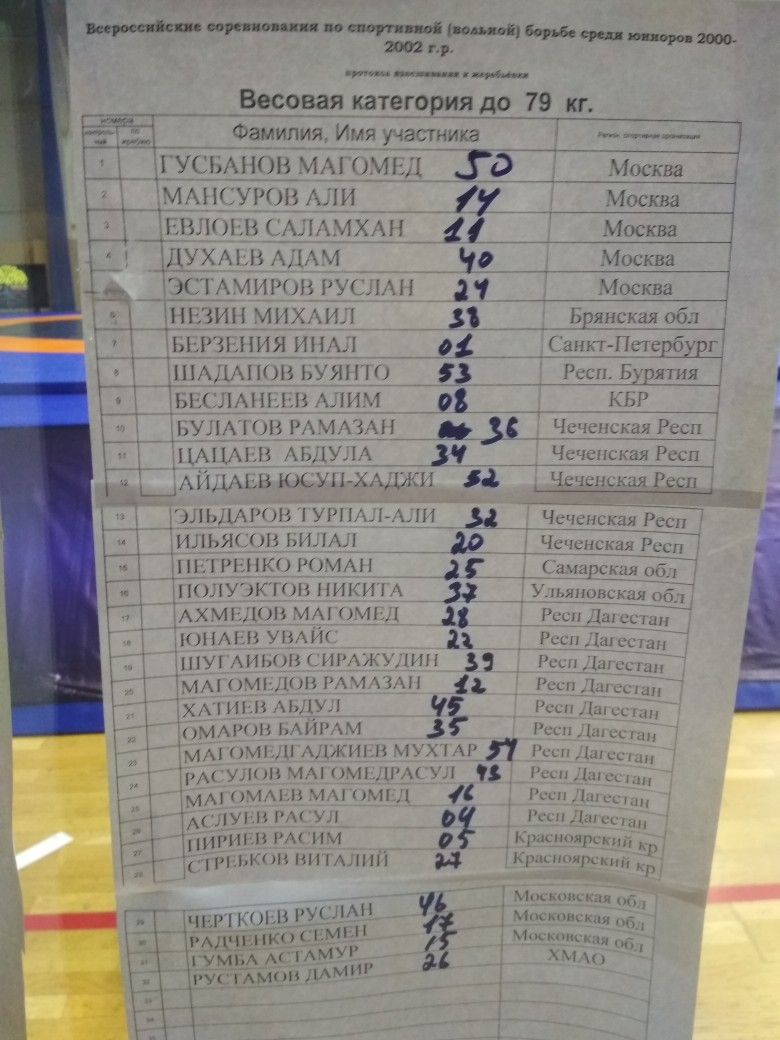 Всероссийские соревнования по спортивной (вольной) борьбе среди юниоров 2000-
2002 г.р.
протокол взвешивания и жеребьёвки
Весовая категория до 79 кг.
номера
контроль ный по жребию Фамилия, Имя участника Регион, спортивная организация
1 ГУСБАНОВ МАГОМЕД 50 Москва
2 МАНСУРОВ АЛИ 14 Москва
3 ЕВЛОЕВ САЛАМХАН 11 Москва
4 ДУХАЕВ АДАМ 40 Москва
5 ЭСТАМИРОВ РУСЛАН 24 Москва
6 НЕЗИН МИХАИЛ 38 Брянская обл
7 БЕРЗЕНИЯ ИНАЛ 01 Санкт-Петербург
8 ШАДАПОВ БУЯНТО 53 Респ. Бурятия
9 БЕСЛАНЕЕВ АЛИМ 08 КБР
10 БУЛАТОВ РАМАЗАН 36 Чеченская Респ
11 ЦАЦАЕВ АБДУЛА 34 Чеченская Респ
12 АЙДАЕВ ЮСУП-ХАДЖИ 52 Чеченская Респ
13 ЭЛЬДАРОВ ТУРПАЛ-АЛИ 32 Чеченская Респ
14 ИЛЬЯСОВ БИЛАЛ 20 Чеченская Респ
15 ПЕТРЕНКО РОМАН 25 Самарская обл
16 ПОЛУЭКТОВ НИКИТА 37 Ульяновская обл
17 АХМЕДОВ МАГОМЕД 28 Респ Дагестан
18 ЮНАЕВ УВАЙС 22 Респ Дагестан
19 ШУГАИБОВ СИРАЖУДИН 39 Респ Дагестан
20 МАГОМЕДОВ РАМАЗАН 12 Респ Дагестан
21 ХАТИЕВ АБДУЛ 45 Респ Дагестан
22 ОМАРОВ БАЙРАМ 35 Респ Дагестан
23 МАГОМЕДГАДЖИЕВ МУХТАР 54 Респ Дагестан
24 РАСУЛОВ МАГОМЕДРАСУЛ 43 Респ Дагестан
25 МАГОМАЕВ МАГОМЕД 16 Респ Дагестан
26 АСЛУЕВ РАСУЛ 04 Респ Дагестан
27 ПИРИЕВ РАСИМ 05 Красноярский кр
28 СТРЕБКОВ ВИТАЛИЙ 27 Красноярский кр
29 ЧЕРТКОЕВ РУСЛАН 46 Московская обл
30 РАДЧЕНКО СЕМЕН 17 Московская обл
31 ГУМБА АСТАМУР 15 Московская обл
32 РУСТАМОВ ДАМИР 26 ХМАО
33
34